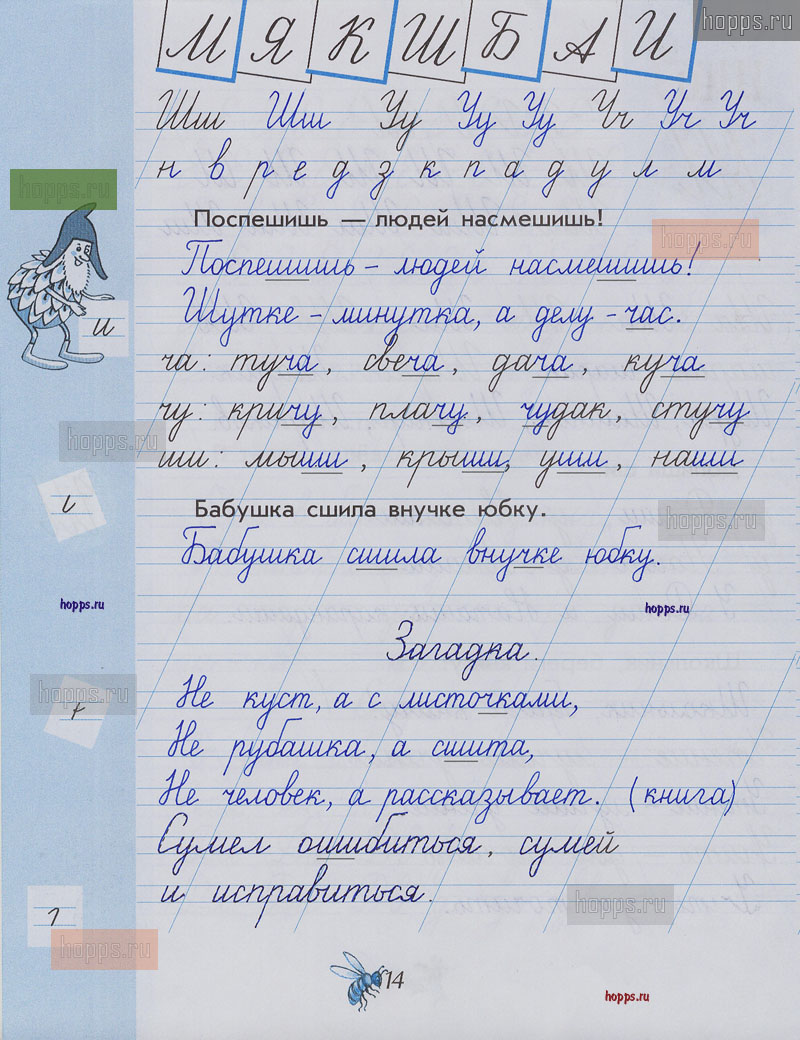 М Я К Ш Б А И
hopps.ru
Шш Шш Уу Уу Уу Уч Уч Уч
н в р е д з к п а д у л м
hopps.ru
Поспешишь — людей насмешишь!
hopps.ru
Поспешишь – людей насмешишь!
Шутке – минутка, а делу – час.
и
ча: туча, свеча, дача, куча
чу: кричу, плачу, чудак, стучу
hopps.ru
ши: мыши, крыши, уши, наши
Бабушка сшила внучке юбку.
hopps.ru
Бабушка сшила внучке юбку.
hopps.ru
hopps.ru
Загадка.
hopps.ru
Не куст, а с листочками,
Не рубашка, а сшита,
Не человек, а рассказывает. (книга)
Сумел ошибиться, сумей
и исправиться.
hopps.ru
hopps.ru
14
hopps.ru